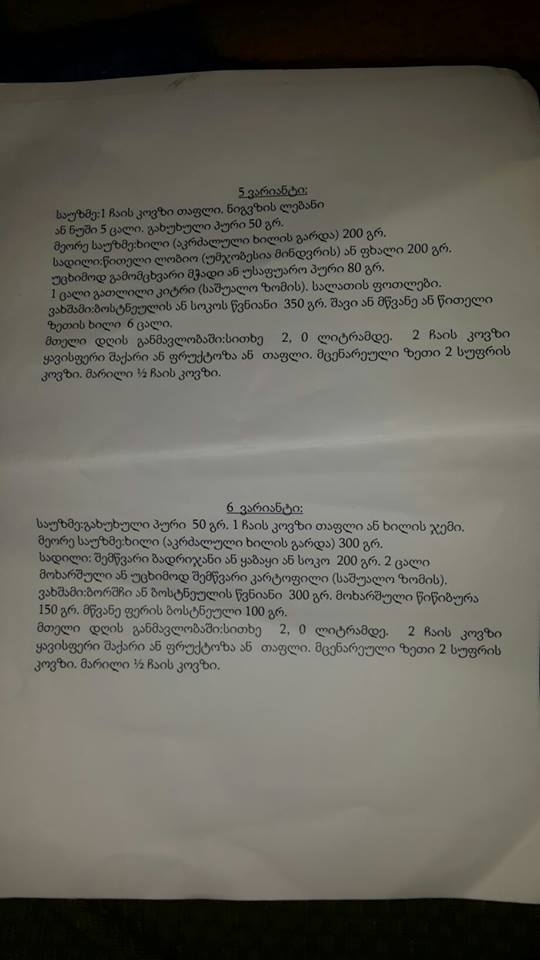 5 ვარიანტი:
საუზმე:1 ჩაის კოვზი თაფლი. ნიგვზის ლებანი
ან ნუში 5 ცალი. გახუხული პური 50 გრ.
მეორე საუზმე:ხილი (აკრძალული ხილის გარდა) 200 გრ.
სადილი:წითელი ლობიო (უმჯობესია მინდვრის) ან ფხალი 200 გრ.
უცხიმოდ გამომცხვარი მჭადი ან უსაფუარო პური 80 გრ.
1 ცალი გათლილი კიტრი (საშუალო ზომის). სალათის ფოთლები.
ვახშამი:ბოსტნეულის ან სოკოს წვნიანი 350 გრ. შავი ან მწვანე ან წითელი
ზეთის ხილი 6 ცალი.
მთელი დღის განმავლობაში:სითხე 2, 0 ლიტრამდე. 2 ჩაის კოვზი
ყავისფერი შაქარი ან ფრუქტოზა ან თაფლი. მცენარეული ზეთი 2 სუფრის
კოვზი. მარილი ½ ჩაის კოვზი.
6 ვარიანტი:
საუზმე:გახუხული პური 50 გრ. 1 ჩაის კოვზი თაფლი ან ხილის ჯემი.
მეორე საუზმე:ხილი (აკრძალული ხილის გარდა) 300 გრ.
სადილი: შემწვარი ბადრიჯანი ან ყაბაყი ან სოკო 200 გრ. 2 ცალი
მოხარშული ან უცხიმოდ შემწვარი კარტოფილი (საშუალო ზომის).
ვახშამი:ბორშჩი ან ბოსტნეულის წვნიანი 300 გრ. მოხარშული წიწიბურა
150 გრ. მწვანე ფერის ბოსტნეული 100 გრ.
მთელი დღის განმავლობაში:სითხე 2, 0 ლიტრამდე. 2 ჩაის კოვზი
ყავისფერი შაქარი ან ფრუქტოზა ან თაფლი. მცენარეული ზეთი 2 სუფრის
კოვზი. მარილი ½ ჩაის კოვზი.